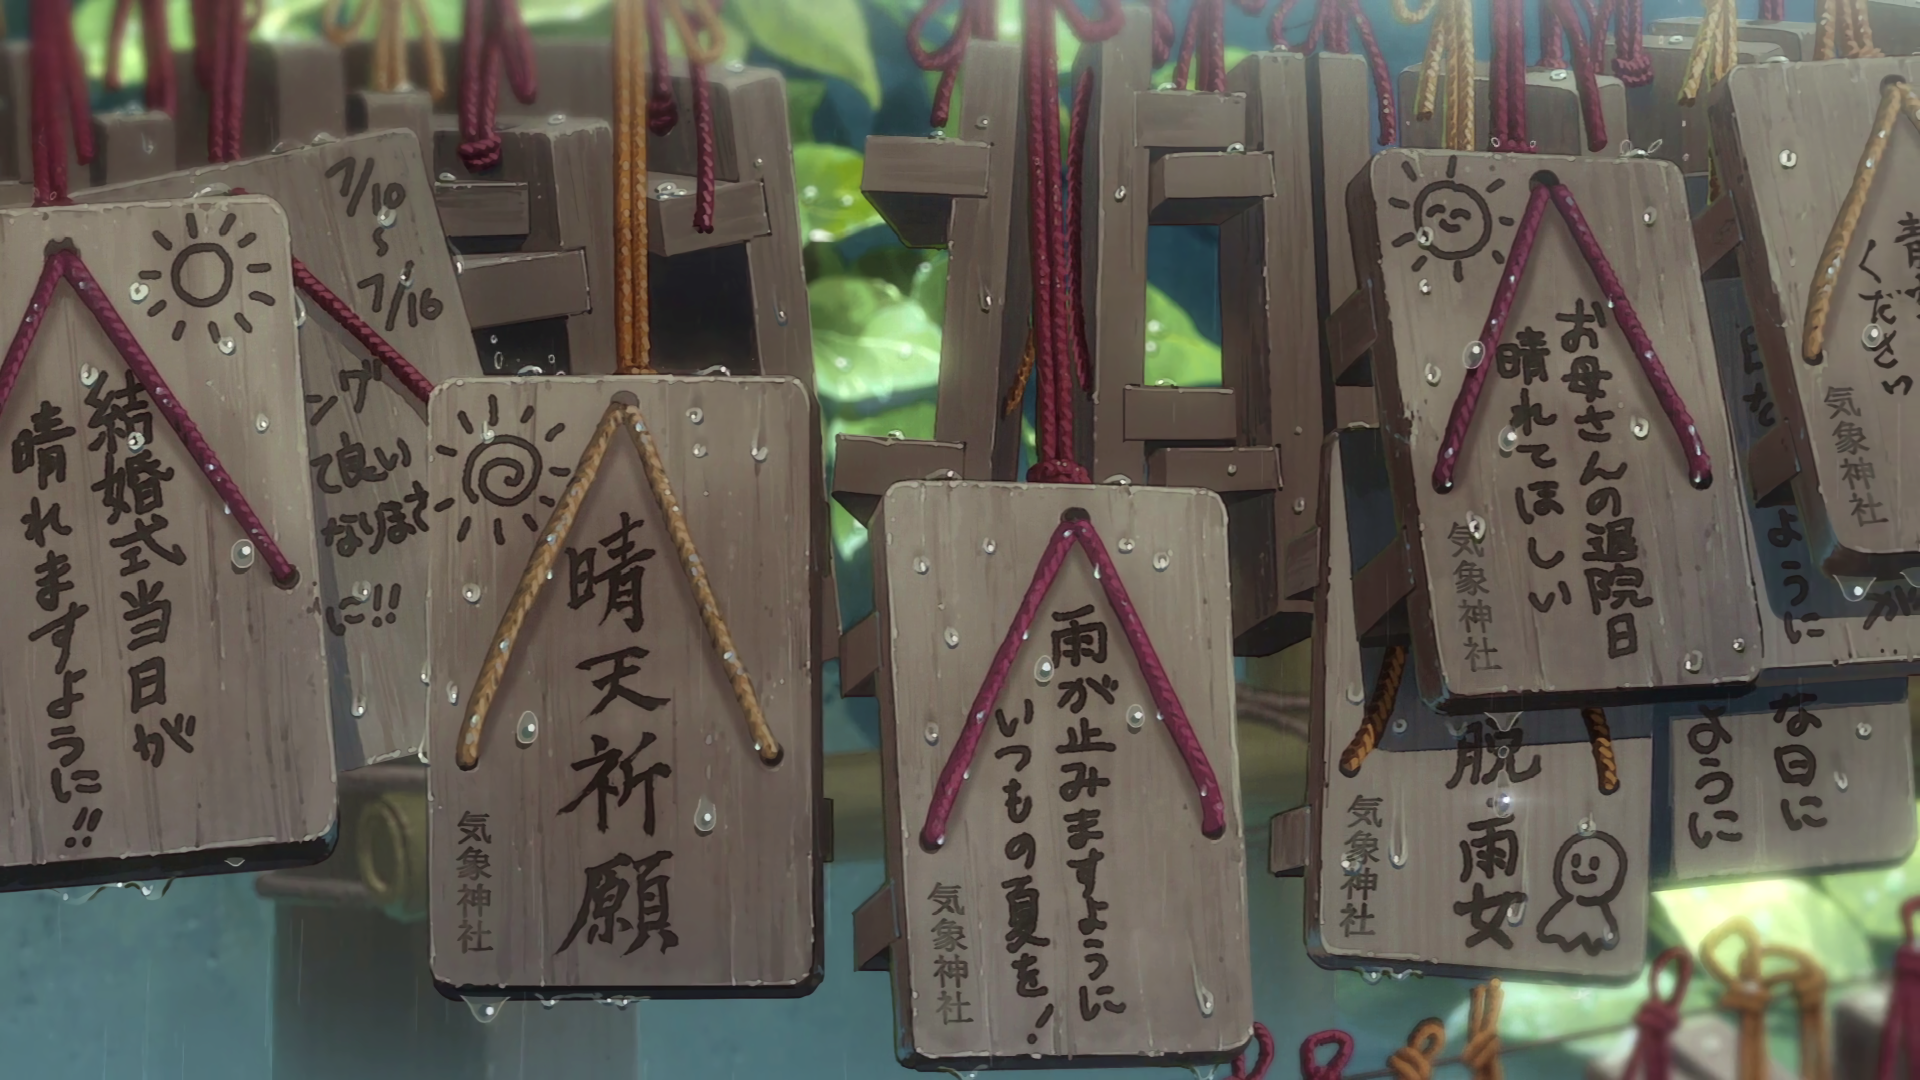 結婚式当日が
晴れますように!!
7/10
〜
7/16
ング
て良い
なりまさ
に!!
晴天祈願
気象神社
雨が止みますように
いつもの夏を!
気象神社
お母さんの退院日
晴れてほしい
気象神社
脱・雨女
気象神社
ください
気象神社
ように
な日に
ように